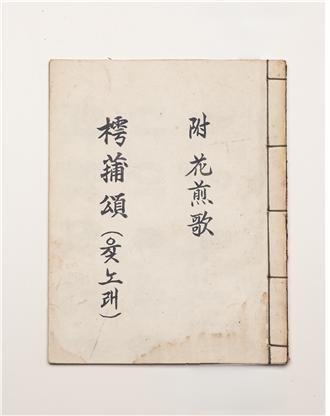 附 花煎歌
樗蒲頌 (윷노래)